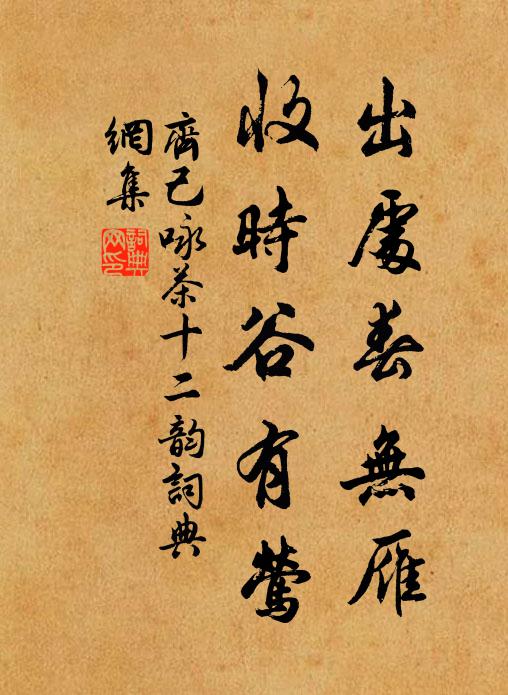 出處春無雁
收時谷有鶯
齊己咏茶十二韵詞典
網集
詞典
网印